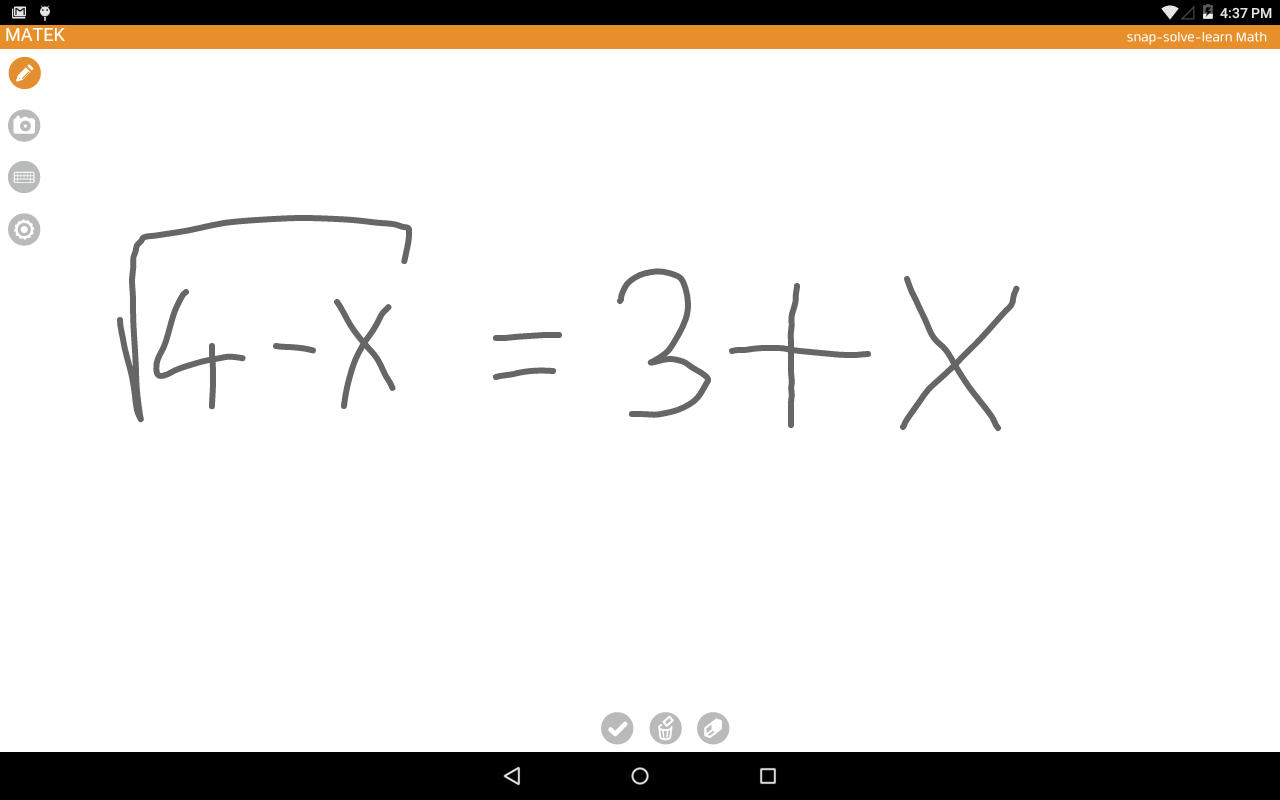 4:37 PM
MATEK snap-solve-learn Math
√(4-x) = 3+x